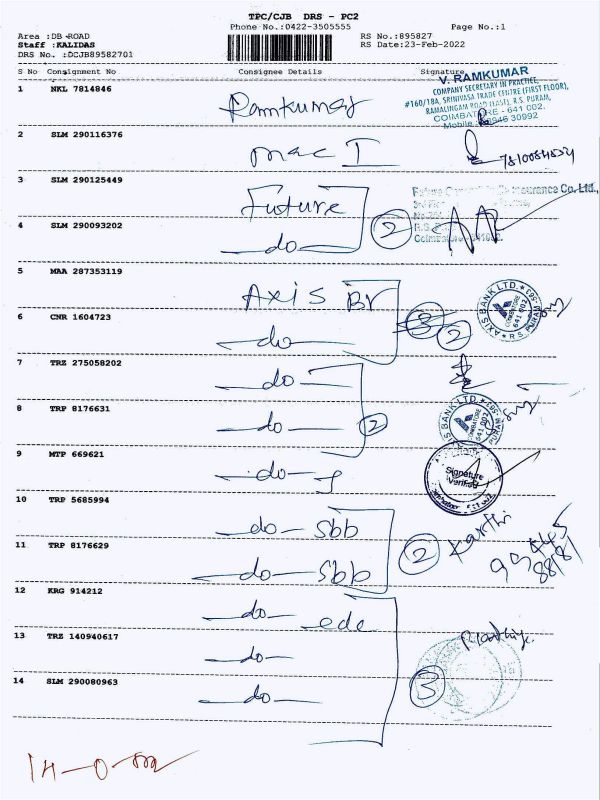 TPC/CJB DRS - PC2
Phone No.:0422-3505555
Page No.:1
Area :DB ROAD
RS No.:895827
Staff :KALIDAS
RS Date:23-Feb-2022
DRS No. :DCJB89582701
S No Consignment No Consignee Details Signature
V. RAMKUMAR
COMPANY SECRETARY IN PRACTICE,
#160/18A, SRINIVASA TRADE CENTRE (FIRST FLOOR),
RAMALINGAM ROAD (EAST), R.S. PURAM,
COIMBATORE - 641 002.
1 NKL 7814846 Ramkumar
2 SLM 290116376 mac I
3 SLM 290125449 Future
4 SLM 290093202 do 2
5 MAA 287353119 AXIS Br
AXIS BANK LTD. COIMBATORE 641 002 R.S. PURAM
6 CNR 1604723 do 2
7 TRZ 275058202 do
8 TRP 8176631 do 2
AXIS BANK LTD. COIMBATORE 641 002
9 MTP 669621 do
Signature Verified
10 TRP 5685994 do Sbb
11 TRP 8176629 do Sbb 2 Karthi
12 KRG 914212 do
13 TRZ 140940617 do
14 SLM 290080963 do 3